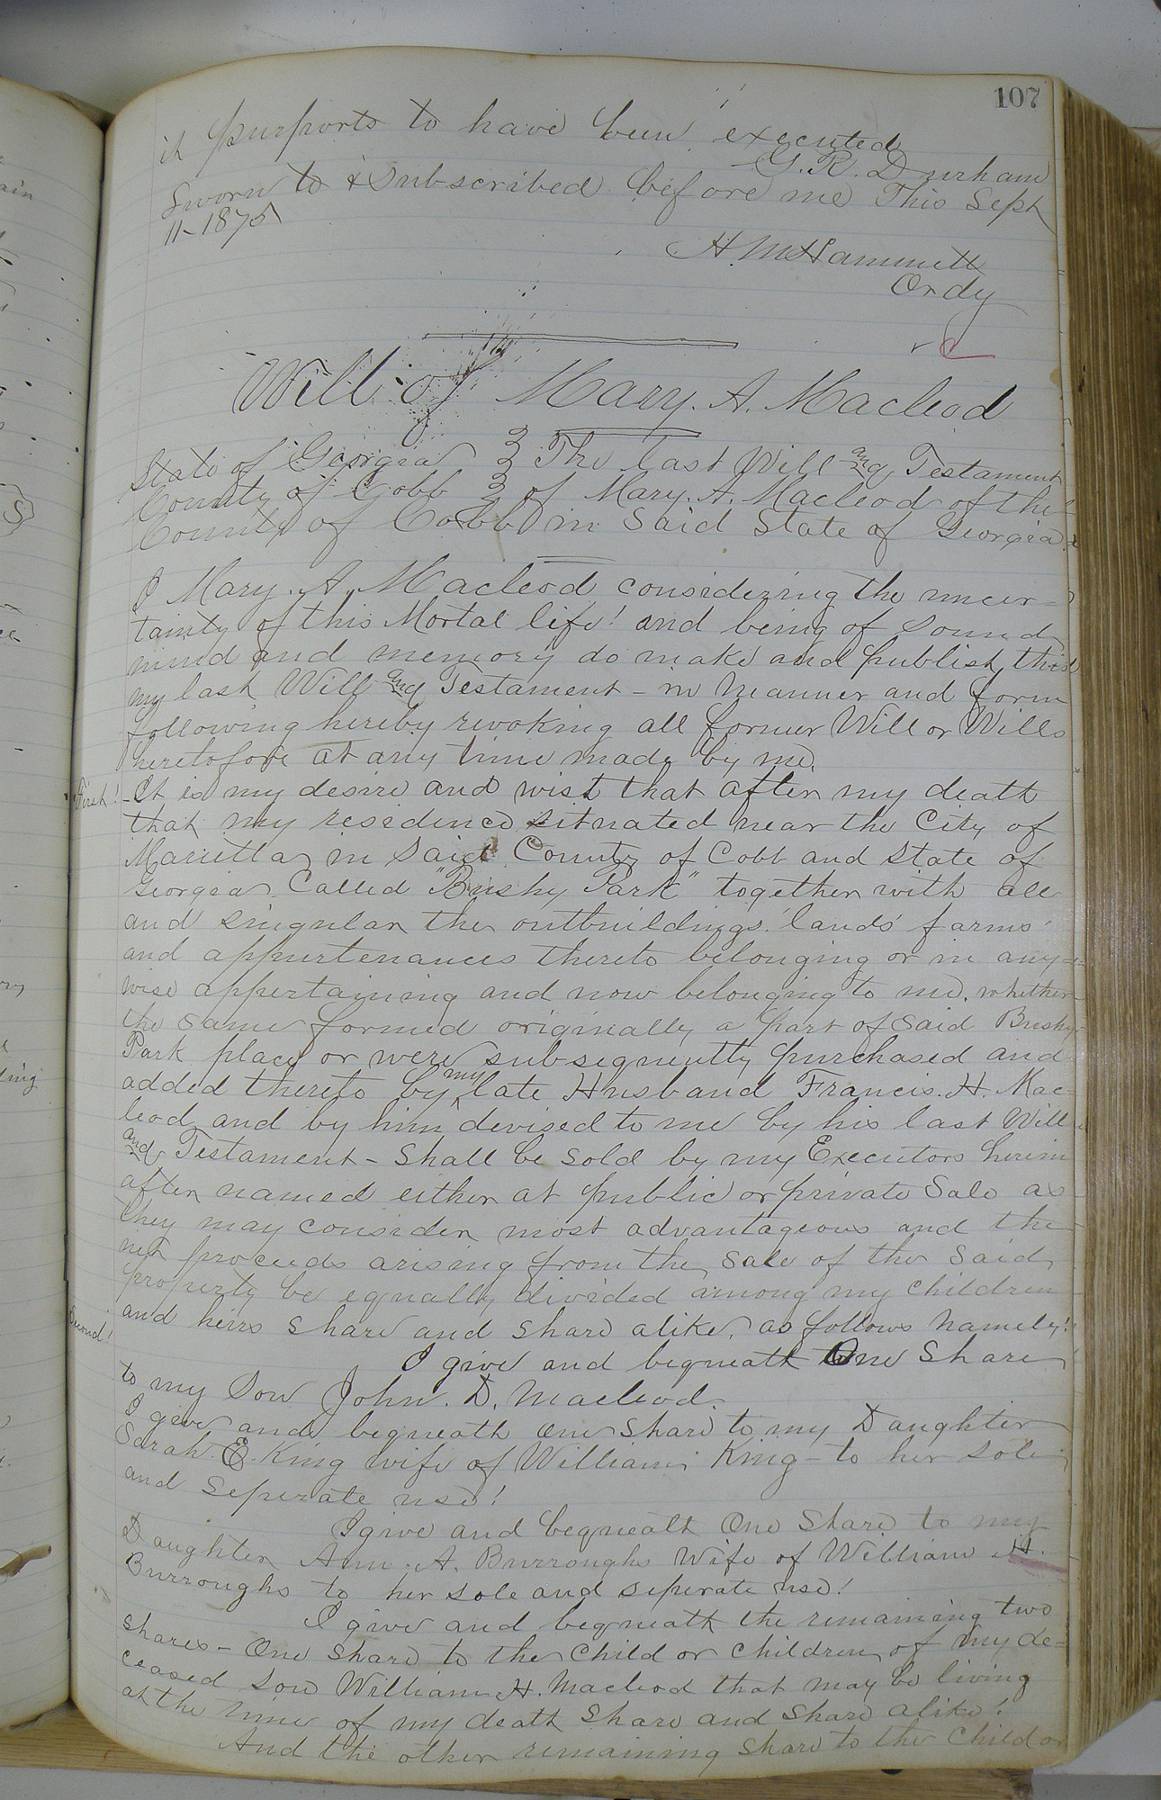 107
it purports to have been executed
G. R. Durham
Sworn to & Subscribed before me This Sept
11-1875
H. M Hammett
Ordy
Will of Mary. A. Macleod
State of Georgia } The last Will and Testament
County of Cobb } of Mary. A. Macleod of the
County of Cobb in Said State of Georgia
I Mary. A. Macleod considering the uncer=
tainty of this Mortal life! and being of Sound
mind and memory do make and publish this
my last Will and Testament - in manner and form
following hereby revoking all former Will or Wills
heretofore at any time made by me.
First! - It is my desire and wish that after my death
that my residence situated near the City of
Marietta in Said County of Cobb and State of
Georgia Called "Bushy Park" together with all
and singular the outbuildings lands farms
and appurtenances thereto belonging or in any=
wise appertaining and now belonging to me. whether
the same formed originally a part of said Bushy
Park place or were subsequently purchased and
added thereto by my late Husband Francis. H. Mac=
leod and by him devised to me by his last Will
and Testament - Shall be Sold by my Executors herein
after named either at public or private Sale as
they may consider most advantageous and the
net proceeds arising from the sale of the said
property be equally divided among my children
and heirs share and share alike, as follows Namely!
Second! I give and bequeath One Share
to my Son John. D. Macleod.
I give and bequeath one share to my Daughter
Sarah E. King wife of William King - to her sole
and Seperate use!
I give and bequeath One Share to my
Daughter Ann. A. Burroughs Wife of William H.
Burroughs to her sole and seperate use!
I give and bequeath the remaining two
shares - One Share to the Child or Children of my de=
ceased Son William H. Macleod that may be living
at the time of my death Share and Share alike!
And the other remaining share to the Child or